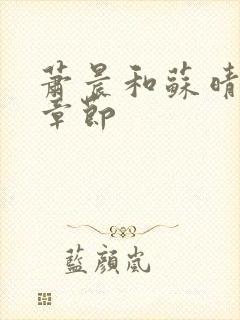 蕭晨和蘇晴
章節
藍顏嵐